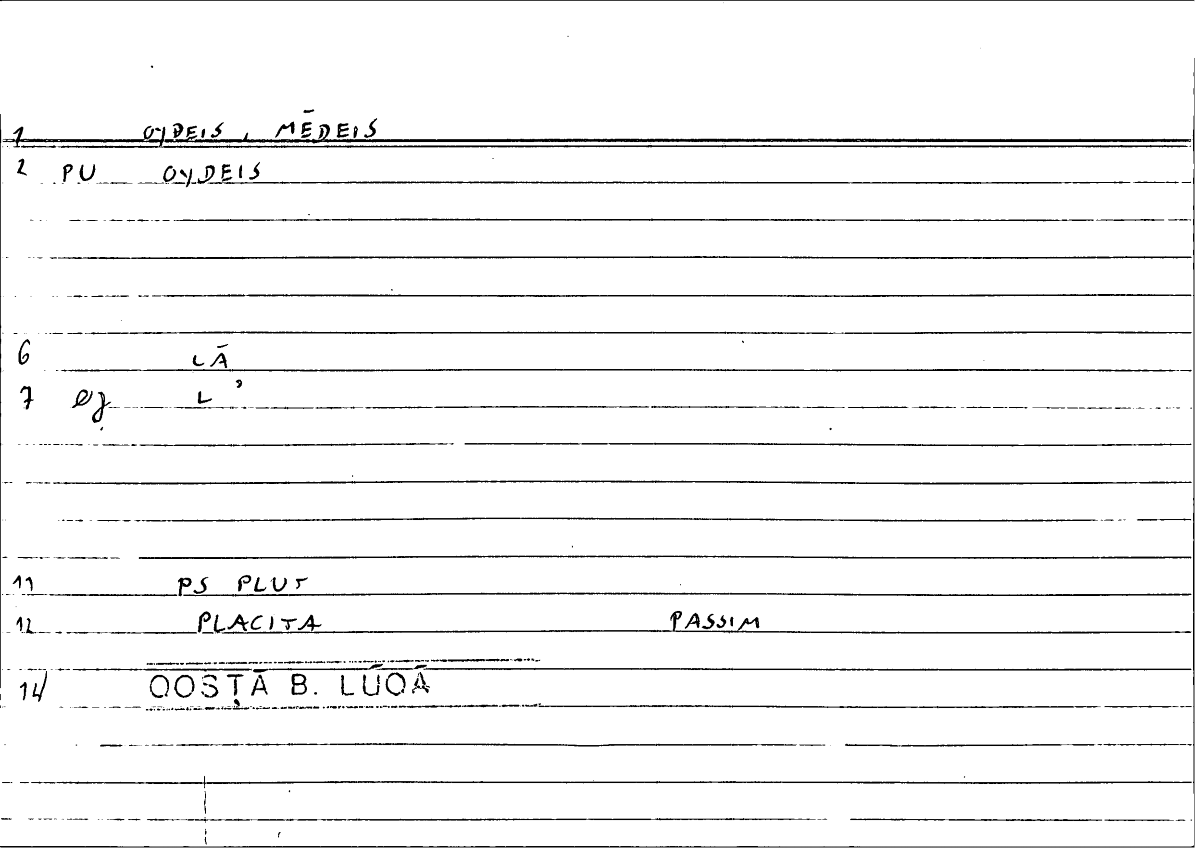 1 OYDEIS, MĒDEIS
2 PU OYDEIS
6 LĀ
7 L'
11 PS PLUT
12 PLACITA PASSIM
14 QOSṬĀ B. LŪQĀ